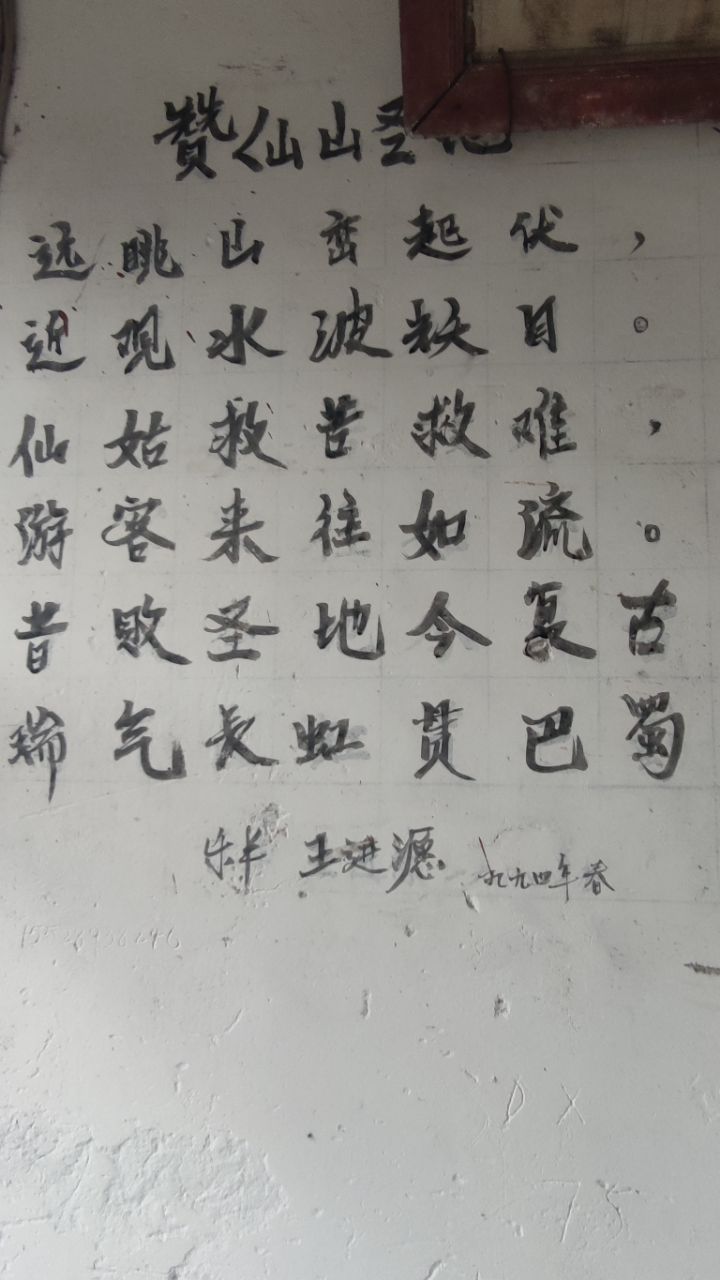 赞仙山圣地
远眺山峦起伏，
近观水波目。
仙姑救苦救难，
游客来往如流。
昔败圣地今复古
瑞气长虹贯巴蜀
王进 九九四年春